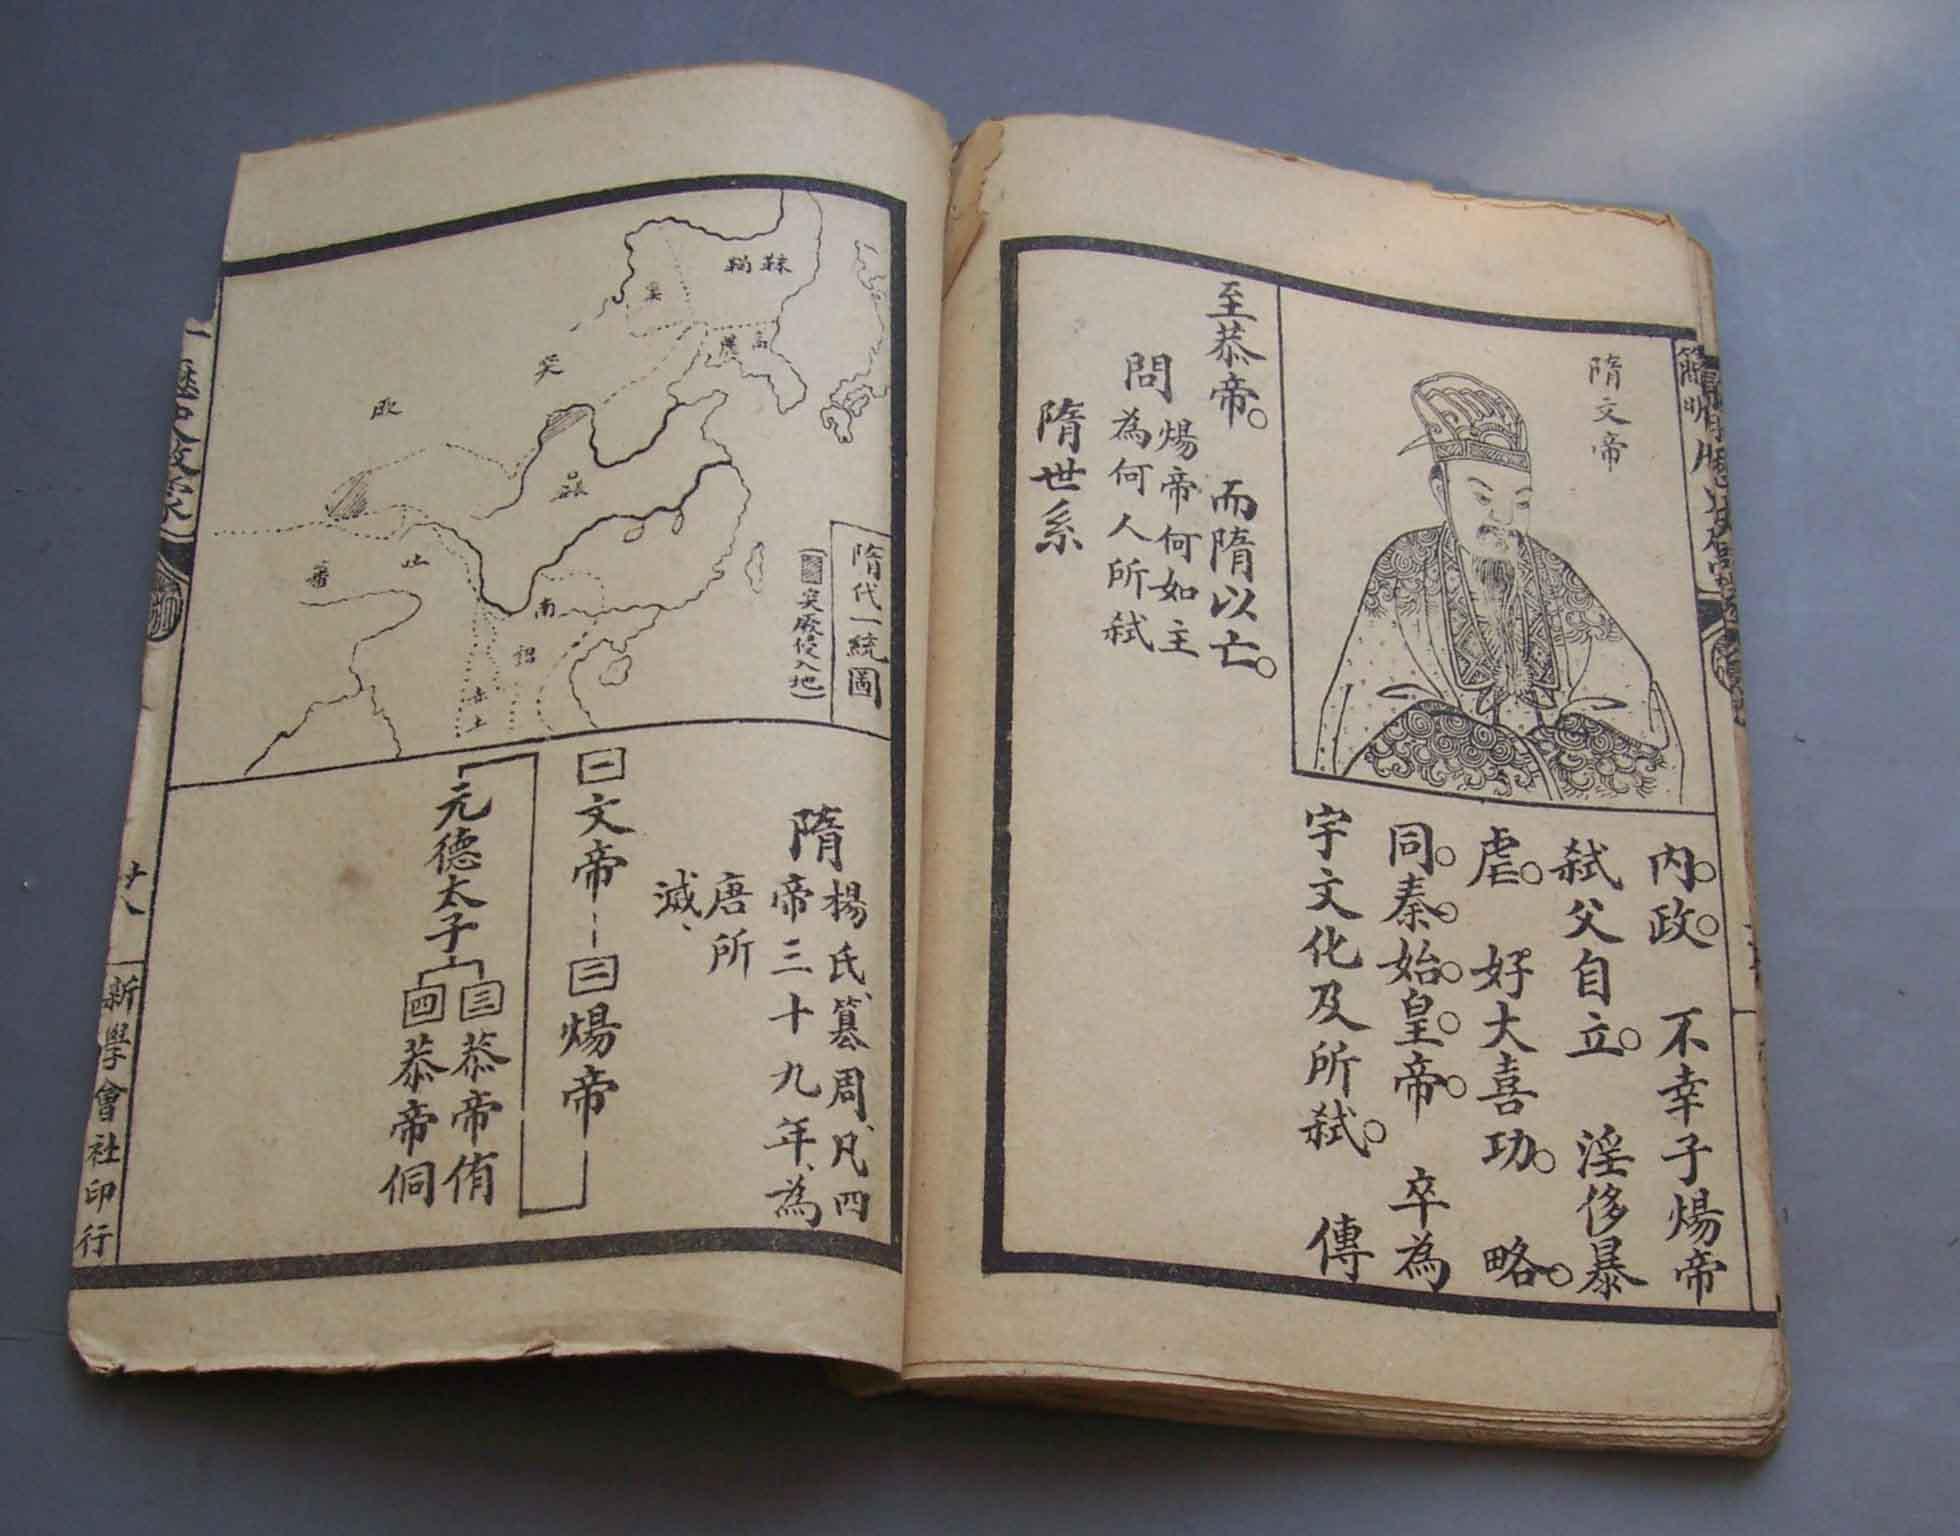 隋文帝
內政。不幸子煬帝
弒父自立。淫侈暴
虐。好大喜功。略
同秦始皇帝。卒為
宇文化及所弒。傳
至恭帝。而隋以亡。
問煬帝何如主
為何人所弒
隋世系
隋代一統圖
(突厥侵入地)
靺鞨
契
高麗
突
厥
隋
吐
番
南
詔
赤土
隋楊氏、篡周、凡四
帝三十九年、為
唐所
滅、
一文帝
二煬帝
元德太子
三恭帝侑
四恭帝侗
廿八
新學會社印行